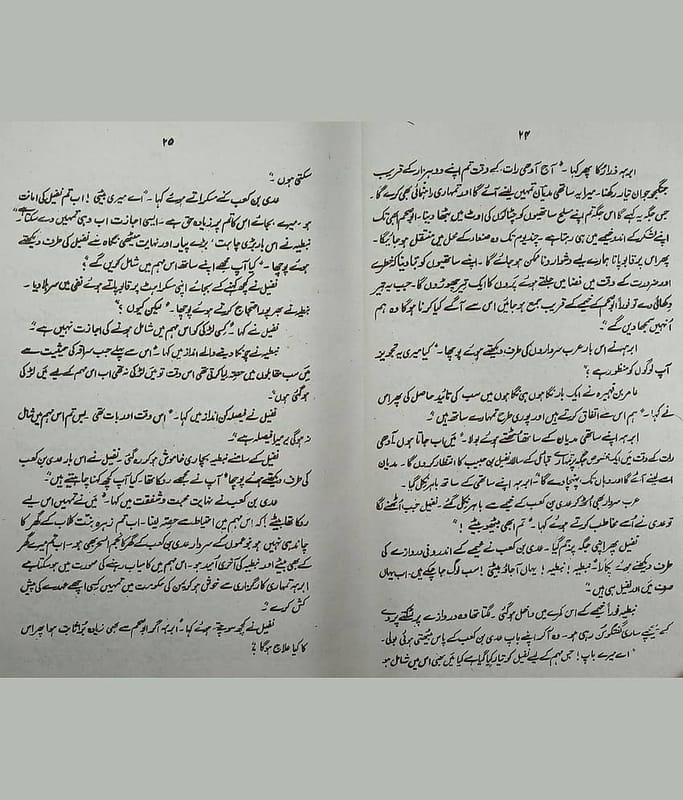 ۲۴
ابرہہ ذرا رُکا پھر کہا۔ "آج آدھی رات کے وقت تم اپنے دو ہزار کے قریب
جنگجو جوان تیار رکھنا۔ میرا یہ ساتھی مدیان تمہیں لینے آئے گا اور تمہاری راہنمائی بھی کرے گا۔
جس جگہ یہ کہے گا اس جگہ تم اپنے مسلح ساتھیوں کو چٹانوں کی اوٹ میں بٹھا دینا۔ ابھی تک
اپنے لشکر کے اندر خیمے میں ہی رہتا ہے۔ چند یوم تک وہ صنعاء کے محل میں منتقل ہو جائے گا۔
پھر اس پر قابو پانا ہمارے لیے دشوار و ناممکن ہو جائے گا۔ اپنے ساتھیوں کو تم
اور ضرورت کے وقت میں فضا میں جلتے ہوئے پروں کا ایک تیر چھوڑوں گا۔ جب یہ تیر
دکھائی دے تو فوراً کے خیمے کے قریب جمع ہو جائیں اس سے آگے کیا کرنا ہو گا وہ ہم
اُنہیں سمجھا دیں گے"
ابرہہ نے اس بار عرب سرداروں کی طرف دیکھتے ہوئے پوچھا۔ "کیا میری یہ تجویز
آپ لوگوں کو منظور ہے؟"
عامر بن فہیرہ نے ایک بار نگاہوں ہی نگاہوں میں سب کی تائید حاصل کی پھر اس
نے کہا۔ "ہم اس سے اتفاق کرتے ہیں اور پوری طرح تمہارے ساتھ ہیں"
ابرہہ اپنے ساتھی مدیان کے ساتھ اُٹھتے ہوئے بولا۔ "میں اب جاتا ہوں آدھی
رات کے وقت میں ایک مخصوص جگہ پر تمہارے قبائل کے سالار نفیل بن حبیب کا انتظار کروں گا۔ مدیان
اسے لینے آئے گا اور وہاں تک پہنچا دے گا" ابرہہ اپنے ساتھی کے ساتھ باہر نکل گیا۔
عرب سردار بھی اُٹھ کر عدی بن کعب کے خیمے سے باہر نکل گئے۔ نفیل جب اُٹھنے لگا
تو عدی نے اُسے مخاطب کرتے ہوئے کہا۔ "تم ابھی بیٹھو بیٹے!"
نفیل پھر اپنی جگہ پر جم گیا۔ عدی بن کعب نے خیمے کے اندرونی دروازے کی
طرف دیکھتے ہوئے پکارا "نبطیہ! نبطیہ! یہاں آجاؤ بیٹی! سب لوگ جا چکے ہیں۔ اب یہاں
صرف میں اور نفیل ہی ہیں"
نبطیہ فوراً خیمے کے اس کمرے میں داخل ہو گئی۔ لگتا تھا وہ دروازے پر لٹکتے پردے
کے پیچھے ساری گفتگو سن رہی ہو۔ وہ آ کر اپنے باپ عدی بن کعب کے پاس بیٹھتی ہوئی بولی۔
"اے میرے باپ! جس مہم کے لیے نفیل کو تیار کیا گیا ہے کیا میں بھی اس میں شامل ہو
۲۵
سکتی ہوں۔"
عدی بن کعب نے مسکراتے ہوئے کہا۔ "اے میری بیٹی! اب تم نفیل کی امانت
ہو۔ میرے بجائے اس کا تم پر زیادہ حق ہے۔ ایسی اجازت اب وہی تمہیں دے سکتا ہے"
نبطیہ نے اس بار بڑی چاہت، بڑے پیار اور نہایت میٹھی نگاہ سے نفیل کی طرف دیکھتے
ہوئے پوچھا۔ "کیا آپ مجھے اپنے ساتھ اس مہم میں شامل کریں گے؟"
نفیل نے کچھ کہنے کے بجائے اپنی مسکراہٹ پر قابو پاتے ہوئے نفی میں سر ہلا دیا۔
نبطیہ نے بھرپور احتجاج کرتے ہوئے پوچھا۔ "لیکن کیوں؟"
نفیل نے کہا۔ "کسی لڑکی کو اس مہم میں شامل ہونے کی اجازت نہیں ہے"
نبطیہ نے چونکا دینے والے انداز میں کہا۔ "اس سے پہلے جب سراقہ کی حیثیت سے
میں سب مقابلوں میں حصہ لیا کرتی تھی اس وقت تو میں لڑکی نہ تھی اب اس مہم کے لیے میں لڑکی
ہو گئی ہوں"
نفیل نے فیصلہ کن انداز میں کہا۔ "اس وقت اور بات تھی۔ بس تم اس مہم میں شامل
نہ ہو گی یہ میرا فیصلہ ہے"
نفیل کے سامنے نبطیہ بیچاری خاموش ہو کر رہ گئی۔ نفیل نے اس بار عدی بن کعب
کی طرف دیکھتے ہوئے پوچھا "آپ نے مجھے روکا تھا۔ کیا آپ کچھ کہنا چاہتے ہیں"
عدی بن کعب نے نہایت محبت و شفقت میں کہا۔ "میں نے تمہیں اس لیے
روکا تھا بیٹے! کہ اس مہم میں احتیاط سے حصہ لینا۔ اب تم زہرہ بنت کلاب کے گھر کا
چاند ہی نہیں ہو خثعموں کے سردار عدی بن کعب کے گھر کا نجم السحر بھی ہو۔ اب تم میرے گھر
کے بھی بیٹے اور نبطیہ کی آخری اُمید ہو۔ اس مہم میں کامیاب رہنے کی صورت میں ہو سکتا ہے
ابرہہ تمہاری کارگزاری سے خوش ہو کر یمن کی حکومت میں تمہیں کسی اچھے عہدے کی پیش
کش کرے"
نفیل نے کچھ سوچتے ہوئے کہا۔ "ابرہہ اگر سے بھی زیادہ بُرا ثابت ہوا پھر اس
کا کیا علاج ہو گا؟"